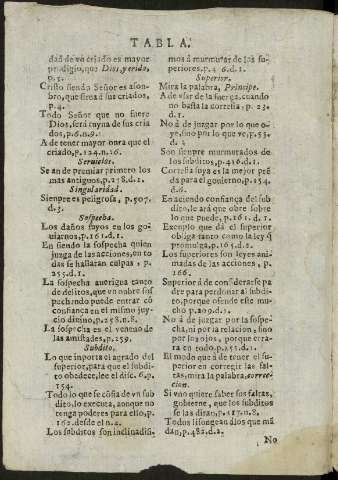 TABLA.
dad de vn criado es mayor
prodigio, que Dios, y erido,
p.5.
Cristo siendo Señor es asom-
bro, que sirva á sus criados,
p.4.
Todo Señor que no fuere
Dios, será ruyna de sus cria
dos, p.6.n.9.
A de tener mayor onra que el
criado, p.124.n.16.
Servicios.
Se an de premiar primero los
mas antiguos, p.278.d.1.
Singularidad.
Siempre es peligrosa, p.507.
d.3.
Sospecha.
Los daños suyos en los go-
uiernos, p.161.d.1.
En siendo la sospecha quien
juzga de las acciones, en to
das se hallarán culpas, p.
255.d.1.
La sospecha auerigua tanto
de delitos, que vn nobre sos
pechando puede entrar cõ
confiança en el mismo juy-
cio divino, p.258.n.8.
La sospecha es el veneno de
las amistades, p.259.
Subdito.
Lo que inporta el agrado del
superior, para que el subdi-
to obedece, lee el disc.6.p.
154.
Todo lo que se cõfia de vn sub
dito, lo executa, aunque no
tenga poderes para ello, p.
162. desde el n.2.
Los subditos son inclinadis.
mos á murmurar de los su-
periores, p.4 6.d.1.
Superior.
Mira la palabra, Principe.
A de vsar de la fuerça, cuando
no basta la cortesia, p. 23.
d.1.
No á de juzgar por lo que o-
ye, sino por lo que ve, p.55.
d.1.
Son sienpre murmurados de
los subditos, p.416.d.1.
Cortesia suya es la mejor prẽ
da para el gouierno, p.154.
d.6.
En aciendo confiança del sub
dito, le ará que obre sobre
lo que puede, p.161.d.1.
Exenplo que dá el superior
obliga tanto como la ley q̃
promulga, p.165.d.2.
Los superiores son leyes ani-
madas de las acciones, p.
166.
Superior á de considerarse pa
dre para perdonar al subdi-
to, porque ofendo este mu-
cho p.209.d.5.
No á de juzgar por la sospe-
cha, ni por la relacion, sino
por los ojos, porque errara-
ra en todo, p.251.d.1.
El modo que á de tener el su-
perior en corregir las fal-
tas, mira la palabra, correc-
cion.
Si vno quiere saber sus faltas,
gobierne, que los subditos
se las diran, p.417.n.8.
Todos lisongean dios que mã
dan, p.482.d.2.
No